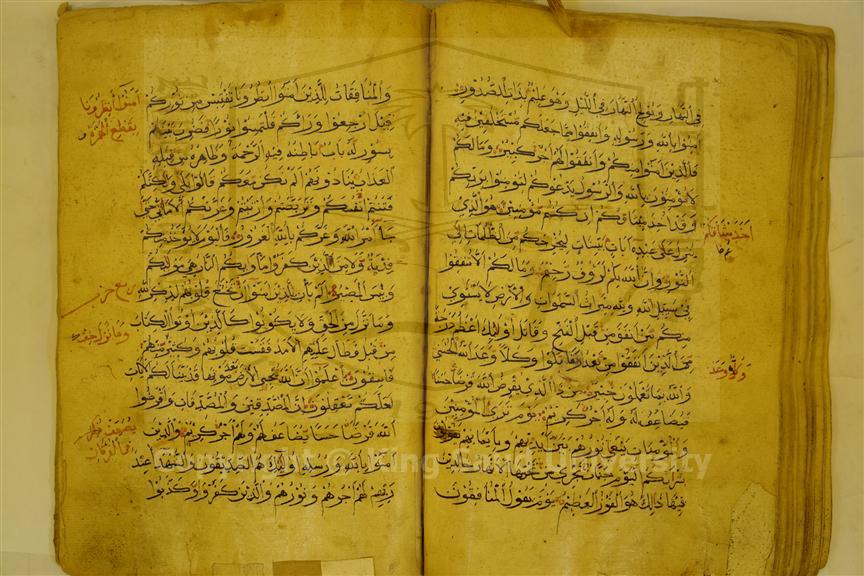 في النهار ويولج النهار في الليل وهو عليم بذات الصدور
امنوا بالله ورسوله وانفقوا مما جعلكم مستخلفين فيه
فالذين امنوا منكم وانفقوا لهم اجر كبير ومالكم
لا تؤمنون بالله والرسول يدعوكم لتؤمنوا بربكم
وقد اخذ ميثاقكم ان كنتم مؤمنين هو الذي
ينزل على عبده ايات بينات ليخرجكم من الظلمات الى
النور وان الله بكم لرؤف رحيم ومالكم الا تنفقوا
في سبيل الله ولله ميراث السموات والارض لا يستوي
منكم من انفق من قبل الفتح وقاتل اولئك اعظم درجة
من الذين انفقوا من بعد وقاتلوا وكلا وعد الله الحسنى
والله بما تعملون خبير من ذا الذي يقرض الله قرضا حسنا
فيضاعفه له وله اجر كريم يوم ترى المؤمنين
والمؤمنات يسعى نورهم بين ايديهم وبايمانهم
بشراكم اليوم جنات تجري من تحتها الانهار خالدين
فيها ذالك هو الفوز العظيم يوم يقول المنافقون
اخذ ميثاقكم
وكل وعد
والمنافقات للذين امنوا انظرونا نقتبس من نوركم
قيل ارجعوا وراكم فالتمسوا نورا فضرب بينهم
بسور له باب باطنه فيه الرحمة وظاهره من قبله
العذاب ينادونهم الم نكن معكم قالوا بلى ولكنكم
فتنتم انفسكم وتربصتم وارتبتم وغرتكم الاماني حتى
جا امر الله وغركم بالله الغرور فاليوم لا يؤخذ منكم
فدية ولا من الذين كفروا ماويكم النار هي موليكم
وبئس المصير الم يان للذين امنوا ان تخشع قلوبهم لذكر الله
وما نزل من الحق ولا يكونوا كالذين اوتوا الكتاب
من قبل فطال عليهم الامد فقست قلوبهم وكثير منهم
فاسقون اعلموا ان الله يحيي الارض بعد موتها قد بينا لكم الايات
لعلكم تعقلون ان المصدقين والمصدقات واقرضوا
الله قرضا حسنا يضاعف لهم ولهم اجر كريم والذين
امنوا بالله ورسله اولئك هم الصديقون والشهدا عند
ربهم لهم اجرهم ونورهم والذين كفروا وكذبوا
امنوا انظرونا
بقطع الهمزة
ربع حزب
وما نزل الحق
Copyright © King Saud University